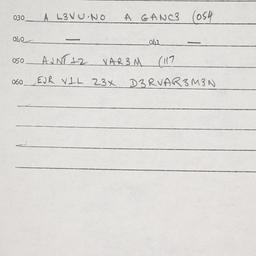 030 A L3VU·NO A GANC3 (054
040 — 043 —
050 AJNT12 VAR3M (117
060 EJR V1L Z3X D3RVAR3M3N